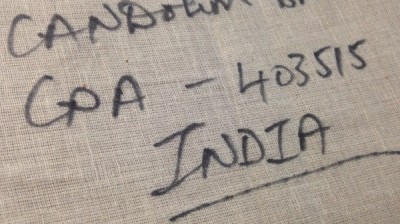 CANDOLIM
GOA - 403515
INDIA